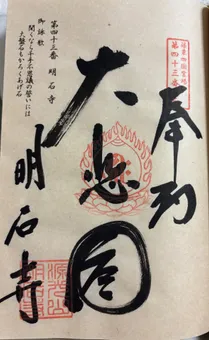 奉納
四国霊場
第四十三番
大悲閣
明石寺
第四十三番 明石寺
御詠歌
聞くならく千手不思議の誓いには
大盤石もかろくあげ石
源光山
明石寺印